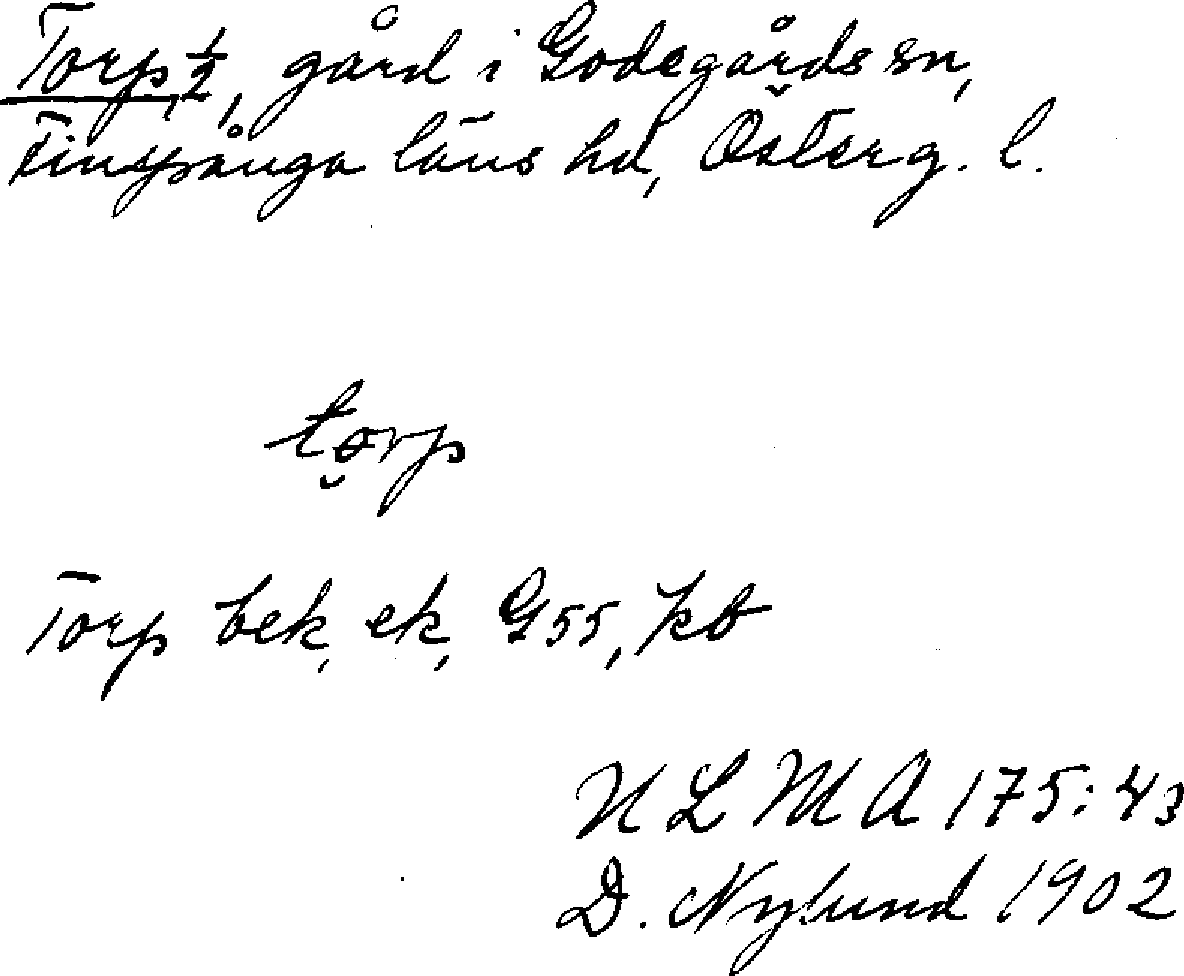 Torp, ½, gård i Godegårds sn,
Finspånga läns hd, Österg. l.
tọrp
Torp bek, ek, G55, kb
ULMA 175:43
D. Nylund 1902